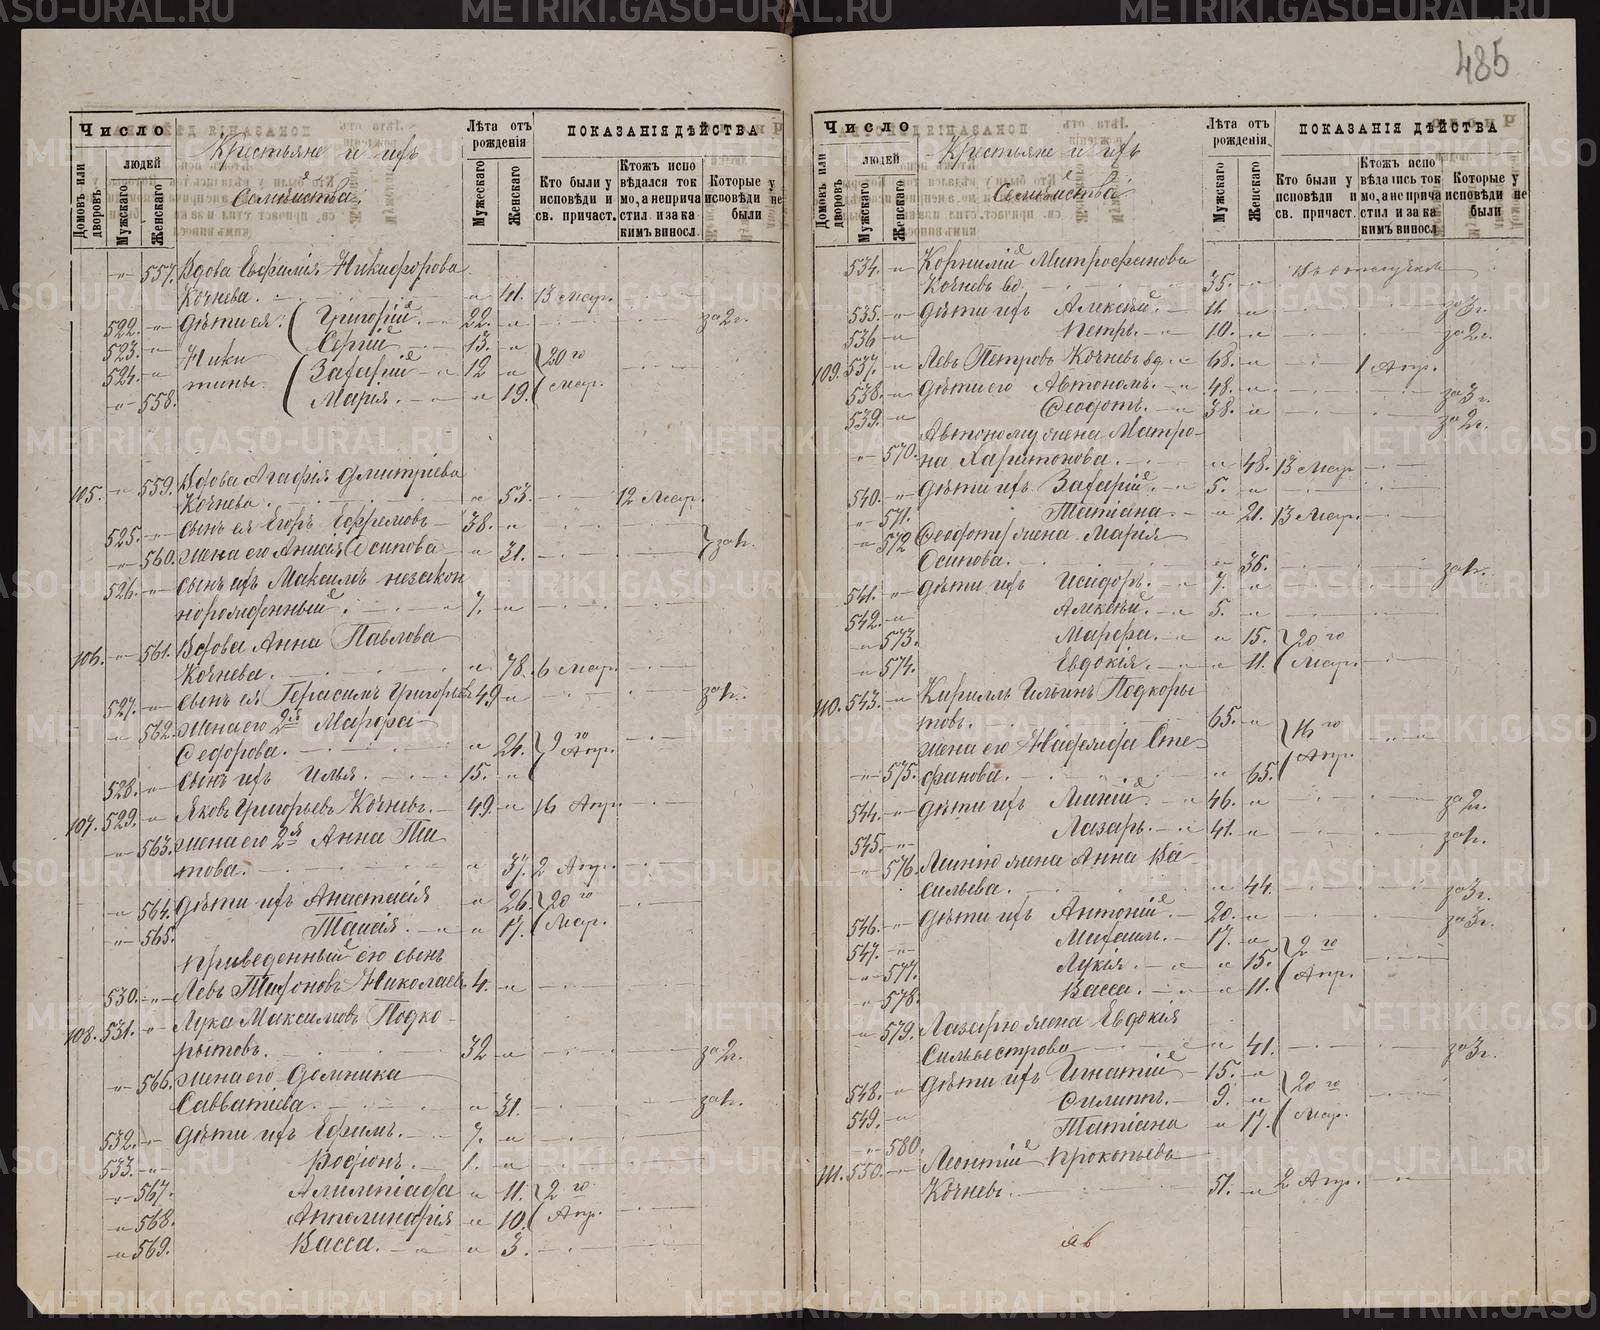 485
Число
Домовъ или дворовъ
людей
Мужскаго
Женскаго
Крестьяне и ихъ
Семейства
Лѣта отъ рожденія
Мужскаго
Женскаго
ПОКАЗАНІЯ ДѢЙСТВА
Кто были у исповѣди и св. причаст.
Ктожъ исповѣдался токмо, а непричастил и за каким виносл.
Которые у исповѣди не были
557. Вдова Евфимія Никифорова
Кочнева. 41. 13 Мар.
522. дѣти ея: Григорій. 22. за 2 г.
523. Сергій 13.
524. Никитины Захарій 12 20го
558. Марія. 19. Мар.
105. 559. Вдова Агафія Дмитріева
Кочнева. 53. 12 Мар.
525. сынъ ея Егоръ Ефремовъ 38.
560. жена его Анисія Осипова 31.
526. сынъ ихъ Максимъ незакон
норожденный. 7.
106. 561. Вдова Анна Павлова
Кочнева. 78. 6 Мар.
527. сынъ ея Герасимъ Григорьевъ 49
562. жена его 2я Марфа
Федорова. 24. 9го Апр.
528. сынъ ихъ Илья. 15.
107. 529. Яковъ Григорьевъ Кочневъ. 49. 16 Апр.
563. жена его 2я Анна Ти
това. 37. 2 Апр.
564. дѣти ихъ Анастасія 26. 20го
565. Таисія. 17. Мар.
приведенный ею сынъ
530. Левъ Николаевъ 4.
108. 531. Лука Максимовъ Подко-
рытовъ. 32 за 2 г.
566. жена его Домника
Савватіева. 31.
532. дѣти ихъ Ефимъ. 7.
533. Родіонъ. 1.
567. Алимпіада 11. 2го
568. Апполинарія 10. Апр.
569. Васса. 3.
Число
Домовъ или дворовъ
людей
Мужскаго
Женскаго
Крестьяне и ихъ
Семейства
Лѣта отъ рожденія
Мужскаго
Женскаго
ПОКАЗАНІЯ ДѢЙСТВА
Кто были у исповѣди и св. причаст.
Ктожъ исповѣдались токмо, а не причастил и за каким виносл.
Которые у исповѣди не были
534. Корнилій Митрофанова
Кочневъ вд. 35. Въ отлучкѣ
535. дѣти ихъ Алексѣй. 11. за 3 г.
536 Петръ. 10. за 2 г.
109. 537. Левъ Петровъ Кочневъ вд. 68. 1 Апр.
538. дѣти его Автономъ. 48. за 3 г.
539. Феодотъ. 38. за 2 г.
Автоному жена Матро-
570. на Харитонова. 48. 13 Мар.
540. дѣти ихъ Захарій. 5.
571. Татіана. 21. 13 Мар.
572 Феодоту жена Марія
Осипова. 36.
541. дѣти ихъ Исидоръ. 7.
542. Алексѣй. 5.
573. Марфа. 15. 20го
574. Евдокія. 11. Мар.
110. 543. Кириллъ Ильинъ Подкоры
товъ. 65. 16го
жена его Надежда Сте-
575. фанова. 65. Апр.
544. дѣти ихъ Линій. 46. за 2 г.
545. Лазарь. 41.
576. Линію жена Анна Ва-
сильева. 44. за 3 г.
546. дѣти ихъ Антоній. 20. за 3 г.
547. Михаилъ. 17. 2го
577. Лукія. 15.
578. Васса. 11. Апр.
579. Лазарю жена Евдокія
Сильвестрова 41. за 3 г.
548. дѣти ихъ Игнатій 15. 20го
549. Филиппъ. 9.
580. Татіана 17. Мар.
111. 550. Леонтій Прокопьевъ
Кочневъ. 51. 2 Апр.
METRIKI.GASO-URAL.RU